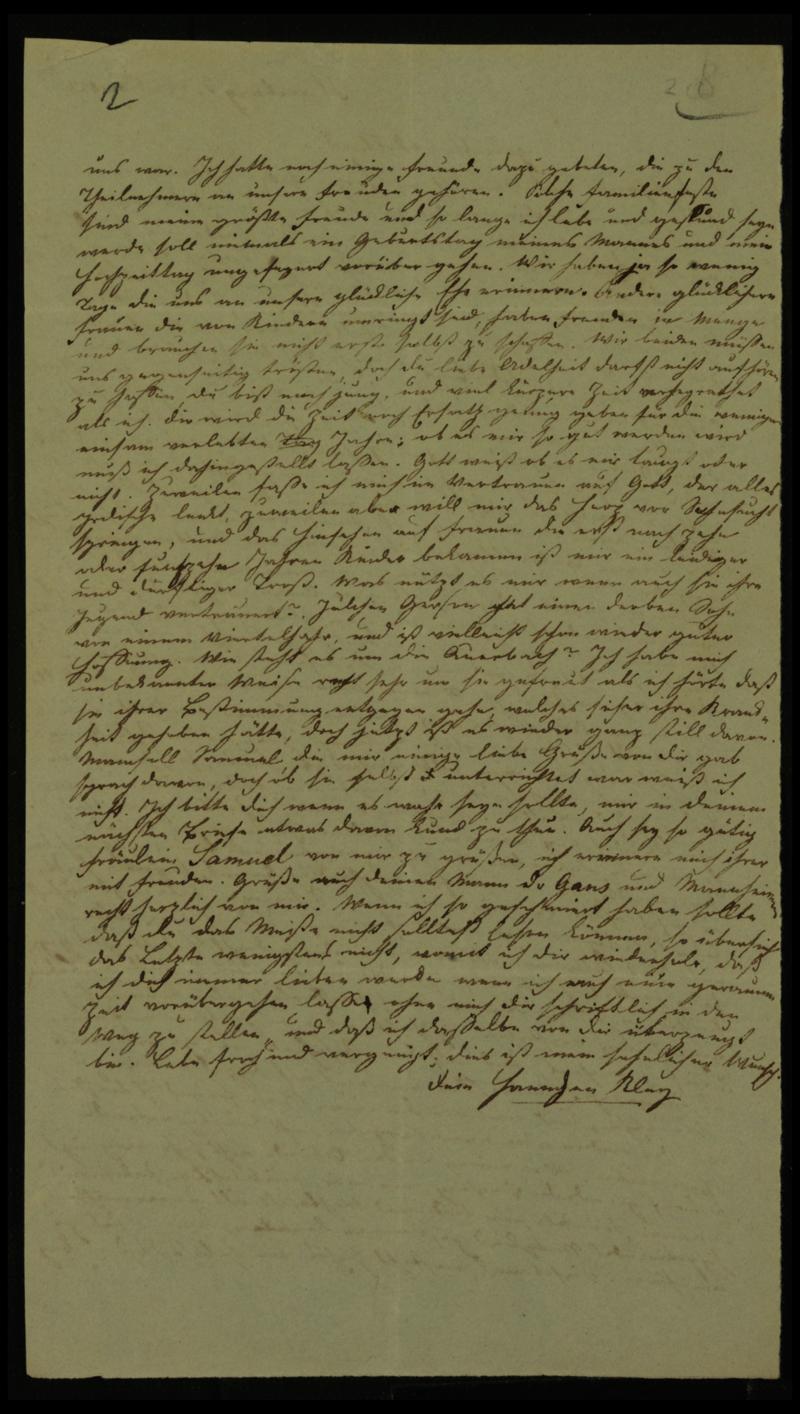 2
uns war. Ich hatte noch einige Freunde dazu gebeten, die zu den
Theilnehmern an unsern Freuden gehören. Solche Familienfeste
sind meine größte Freude und so lange ich lebe und gesund seyn
werde soll niemals ein Geburtstag meines Mannes und mein
Hochzeittag ungefeyert vorüber gehen. Wir haben ja so wenig
Tage die uns an unsere glückliche Ehe erinnern. Andere glücklichere
Frauen die von Kindern umringt sind, haben Freuden in Menge
und brauchen sie nicht erst selbst zu schaffen. Wir beiden müssen
uns gegenseitig trösten, doch du liebe Adelheit darfst nicht aufhören
zu hoffen, du bist noch jung, und viel kürzere Zeit verheyrathet
als ich. dir wird die Zeit noch Ersatz genug geben für die wenigen
einsam verlebten Jahre; ob es mir so gut werden wird
muß ich dahingestellt lassen. Gott weiß ob es mir taugt oder
nicht. Zuweilen fasse ich mich im Vertrauen auf Gott, der alles
Irdische lenkt, zuweilen aber will mir das Herz vor Sehnsucht
springen, und das Hinsehen auf Frauen die erst nach zehn
oder fünfzehn Jahren Kinder bekamen ist mir ein leidiger
und dürftiger Trost. Was nützt es mir wenn auch sie ihre
Jugend vertrauert? Julchen Gerson hat einen derben Sohn
von einem Vierteljahr, und ist vielleicht schon wieder guter
Hoffnung. Wie steht es um die Auerbach? Ich habe mich
unbekannter Weise recht sehr um sie gefreut als ich hörte daß
sie ihrer Bestimmung entgegen gehe, welches sicher ihre Krank-
heit gehoben hätte, doch jetzt ist es wieder ganz still davon.
Mamsell Samuel die mir einige liebe Grüße von dir gab
sprach davon, doch ob sie selbst unterrichtet war weiß ich
nicht. Ich bitte dich wenn es wahr seyn sollte, mir in deinem
nächsten Briefe etwas davon kund zu thun. Auch sey so gütig
Fräulein Samuel von mir zu grüßen, ich erinnere mich ihrer
mit Freuden. Grüße auch deinen Mann Dr Gans und
recht herzlich von mir. Wenn ich so geschmiert haben sollte
daß du das Meiste nicht solltest lesen können, so übersieh
das Letzte wenigstens nicht, womit ich dir wiederhole, daß
ich dich immer lieben werde wenn ich auch eine geraume
Zeit vorübergehen lasse ohne mich dir schriftlich in den
Weg zu stellen, und daß ich dasselbe von dir überzeugt
bin. Lebe froh und vergnügt; dies ist mein sehnlicher Wunsch.
Deine Hannchen Kley